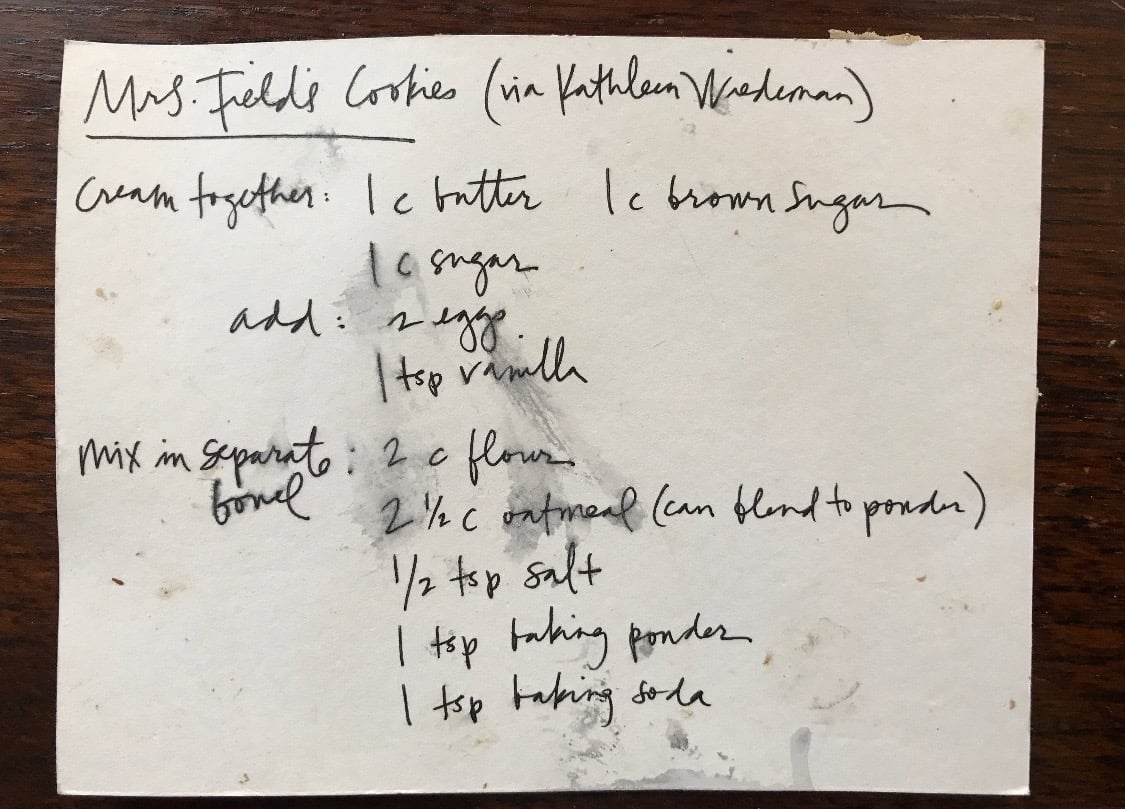 Mrs. Field's Cookies (via Kathleen Wiedeman)
Cream together: 1 c butter 1 c brown sugar
1 c sugar
add: 2 eggs
1 tsp vanilla
Mix in separate : 2 c flour
bowl
2 1/2 c oatmeal (can blend to powder)
1/2 tsp salt
1 tsp baking powder
1 tsp baking soda